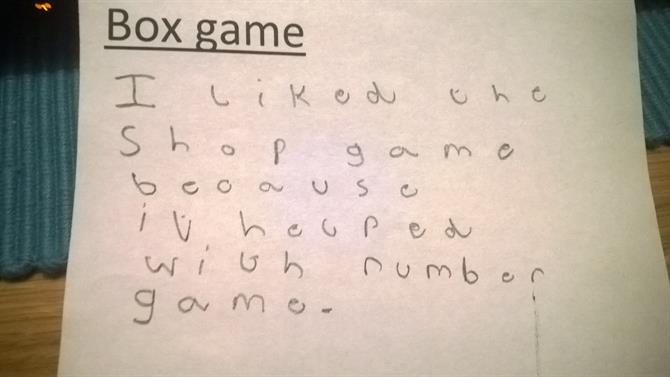 Box game
I liked the
Shop game
becoause
it helped
with number
game.